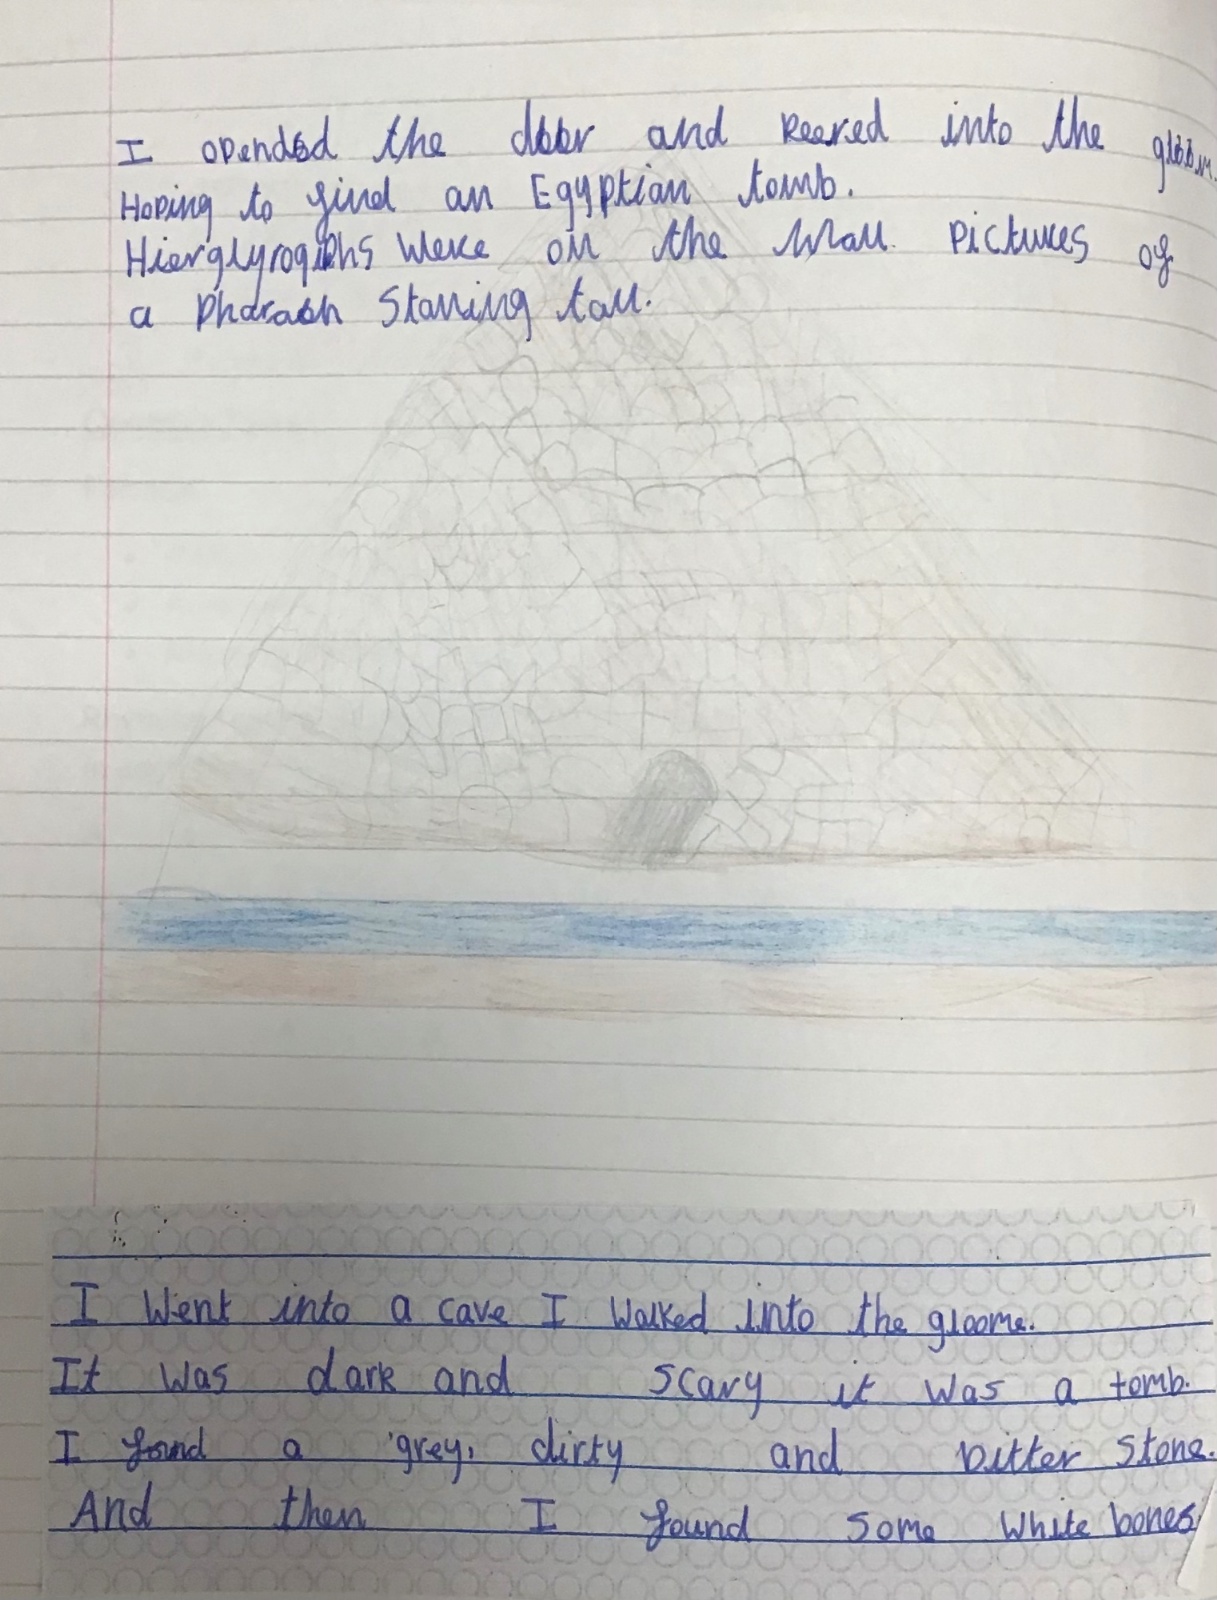 I opended the door and peered into the gloom.
Hoping to find an Egyptian tomb.
Hierglyrogiphs were on the wall. Pictures of
a Pharaoh Staning tall.
I Went into a cave I walked into the gloome.
It was dark and scary it was a tomb.
I found a grey, dirty and bitter stone.
And then I found some white bones